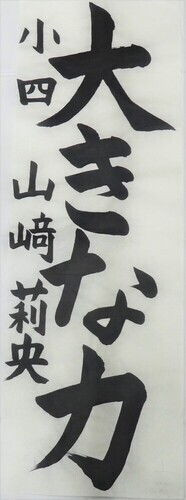 大きな力
小四 山﨑莉央